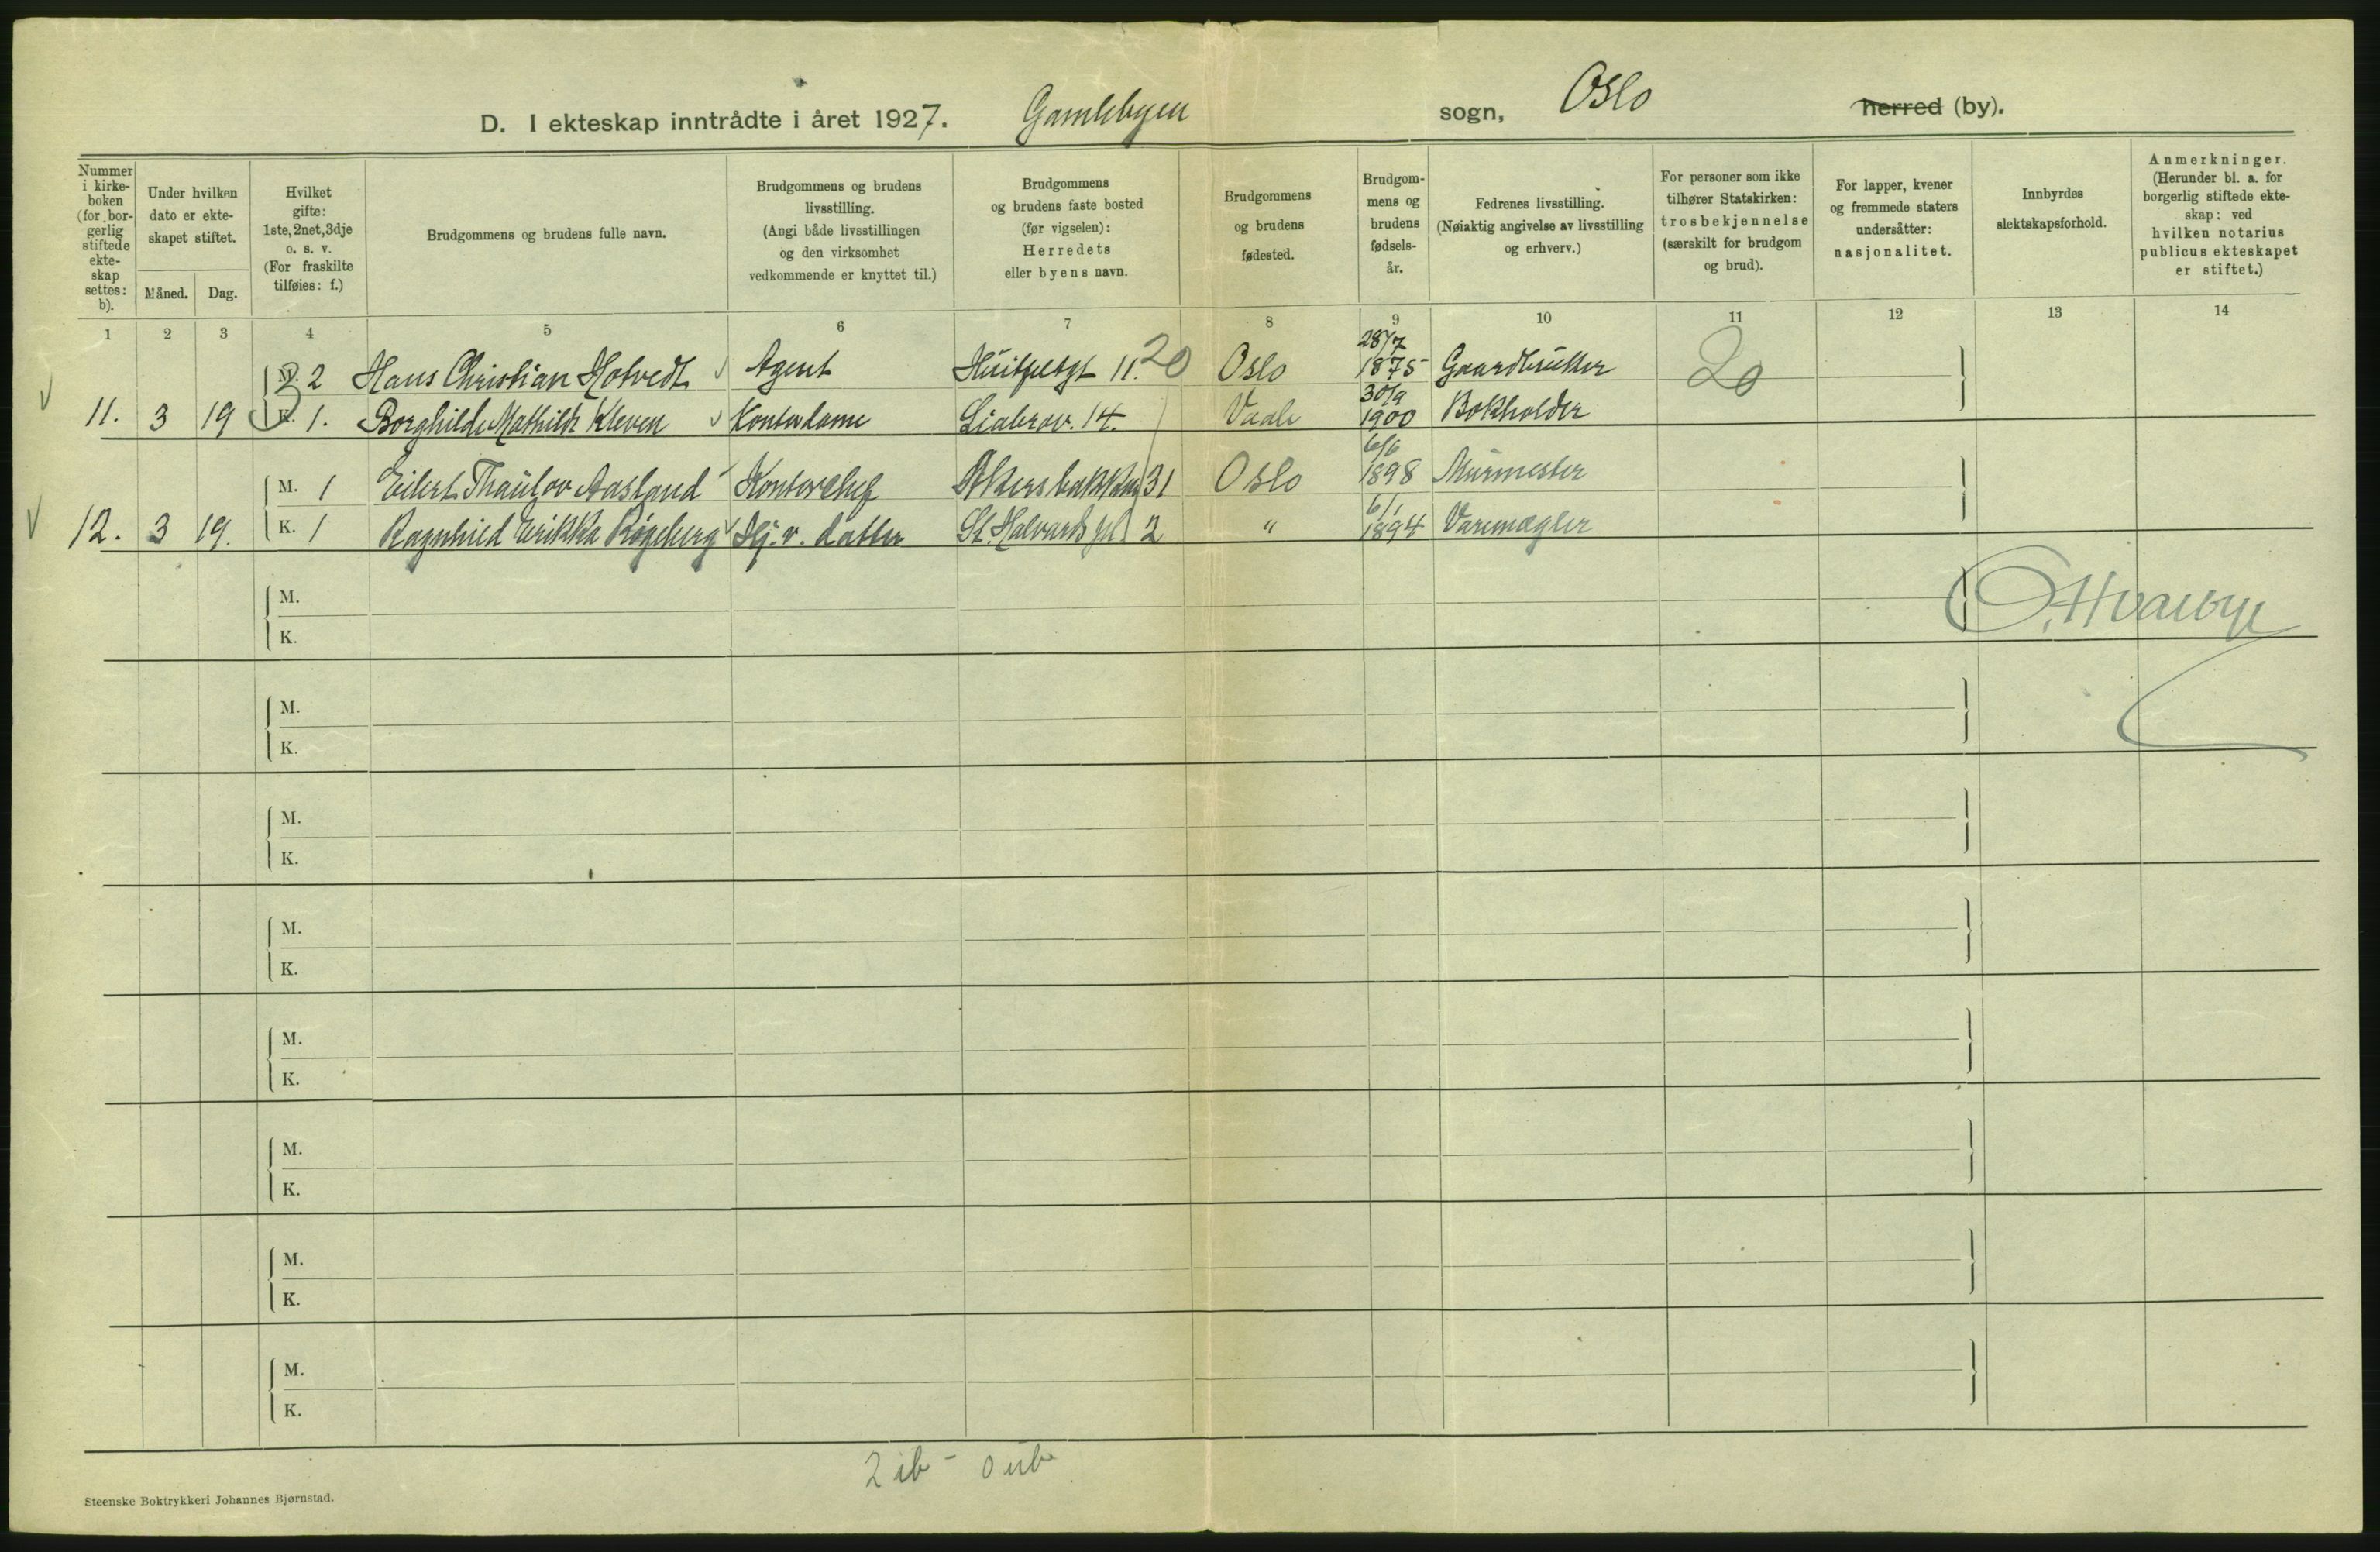 D. I ekteskap inntrådte i året 1927. Gamlebyen sogn, Oslo herred (by).
Nummer i kirke-boken (for bor-gerlig stiftede ekte-skap settes: b).
Under hvilken dato er ekte-skapet stiftet.
Måned. Dag.
Hvilket gifte: 1ste, 2net, 3dje o. s. v. (For fraskilte tilføies: f.)
Brudgommens og brudens fulle navn.
Brudgommens og brudens livsstilling. (Angi både livsstillingen og den virksomhet vedkommende er knyttet til.)
Brudgommens og brudens faste bosted (før vigselen): Herredets eller byens navn.
Brudgommens og brudens fødested.
Brudgom-mens og brudens fødsels-år.
Fedrenes livsstilling. (Nøiaktig angivelse av livsstilling og erhverv.)
For personer som ikke tilhører Statskirken: trosbekjennelse (særskilt for brudgom og brud).
For lapper, kvener og fremmede staters undersåtter: nasjonalitet.
Innbyrdes slektskapsforhold.
Anmerkninger. (Herunder bl. a. for borgerlig stiftede ekte-skap: ved hvilken notarius publicus ekteskapet er stiftet.)
1 2 3 4 5 6 7 8 9 10 11 12 13 14
M. 2 Hans Christian Hotvedt Agent Huitfeldsgt 11. 20 Oslo 28/7 1875 20
11. 3 19 K. 1. Borghilde Mathilde Kleven Kontordame Liabrov. 14. Vaale 30/9 1900 Bokholder
M. 1 Eilert Thaulov Aasland Kontorchef Akersbakken 31 Oslo 6/6 1898 Murmester
12. 3 19. K. 1 Ragnhild Erikka Røgeberg Hj. v. datter St. Halvards pl. 2 " 6/1 1894 Varemægler
M.
K.
M.
K.
M.
K.
M.
K.
M.
K.
M.
K.
M.
K.
M.
K.
2 ib - 0 ub
Steenske Boktrykkeri Johannes Bjørnstad.